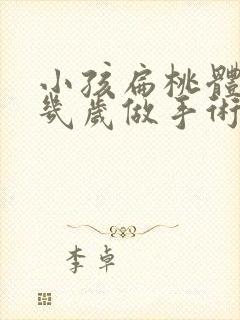 小孩扁桃體
幾歲做手術
李卓